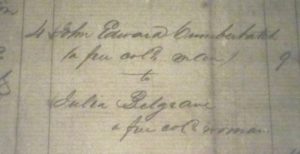 4 John Edward Cumberbatch
(a free cold man)
to
Julia Belgrave
a free cold woman